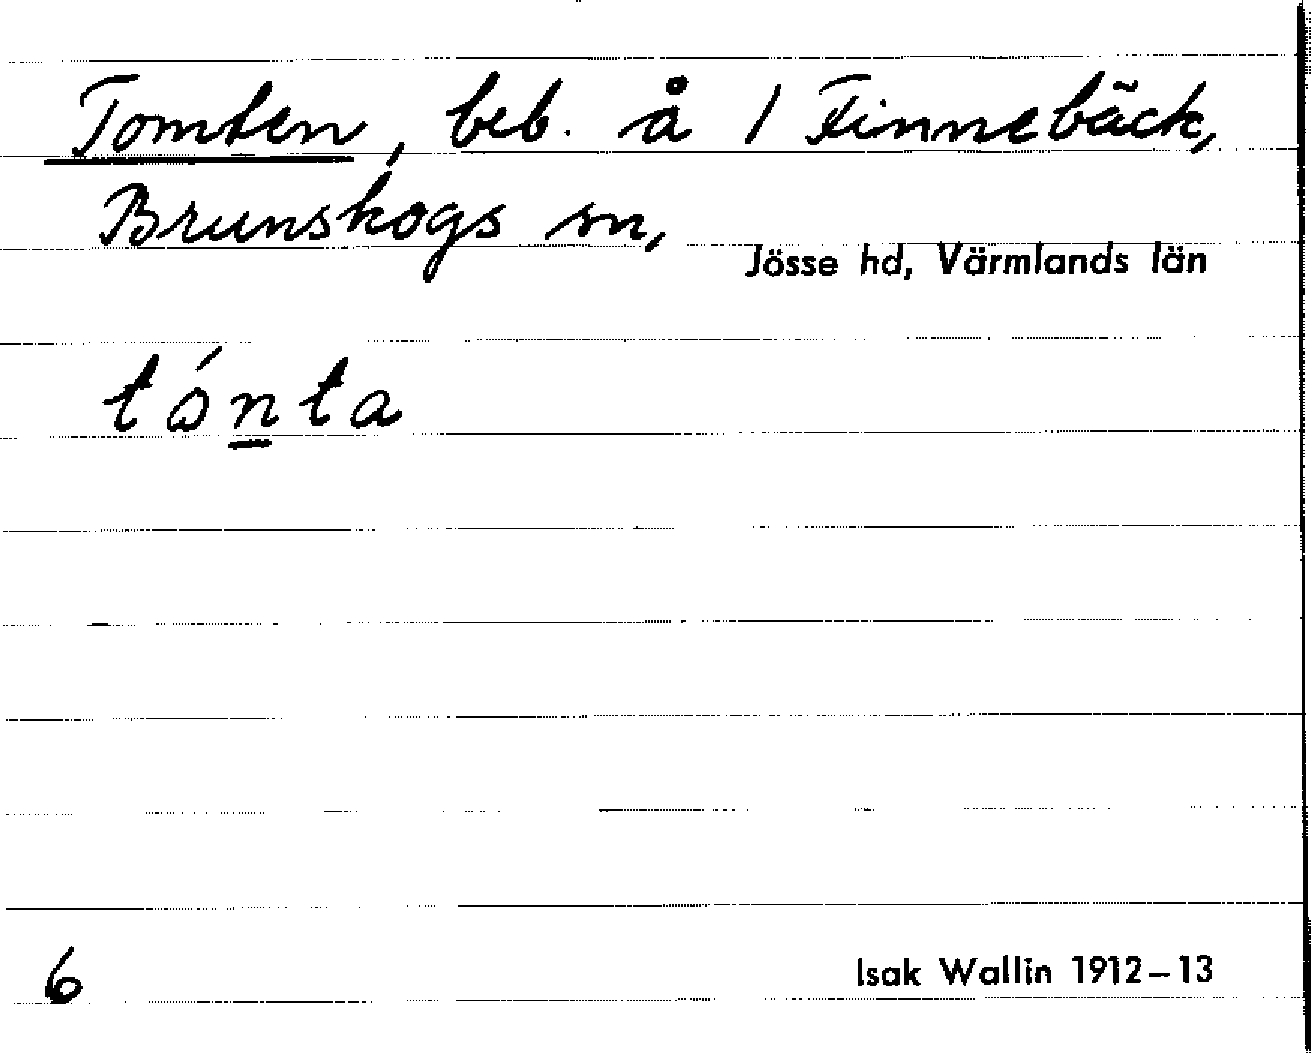 Tomten, beb. å 1 Finnebäck,
Brunskogs sn,
Jösse hd, Värmlands län
tónta
6
Isak Wallin 1912–13